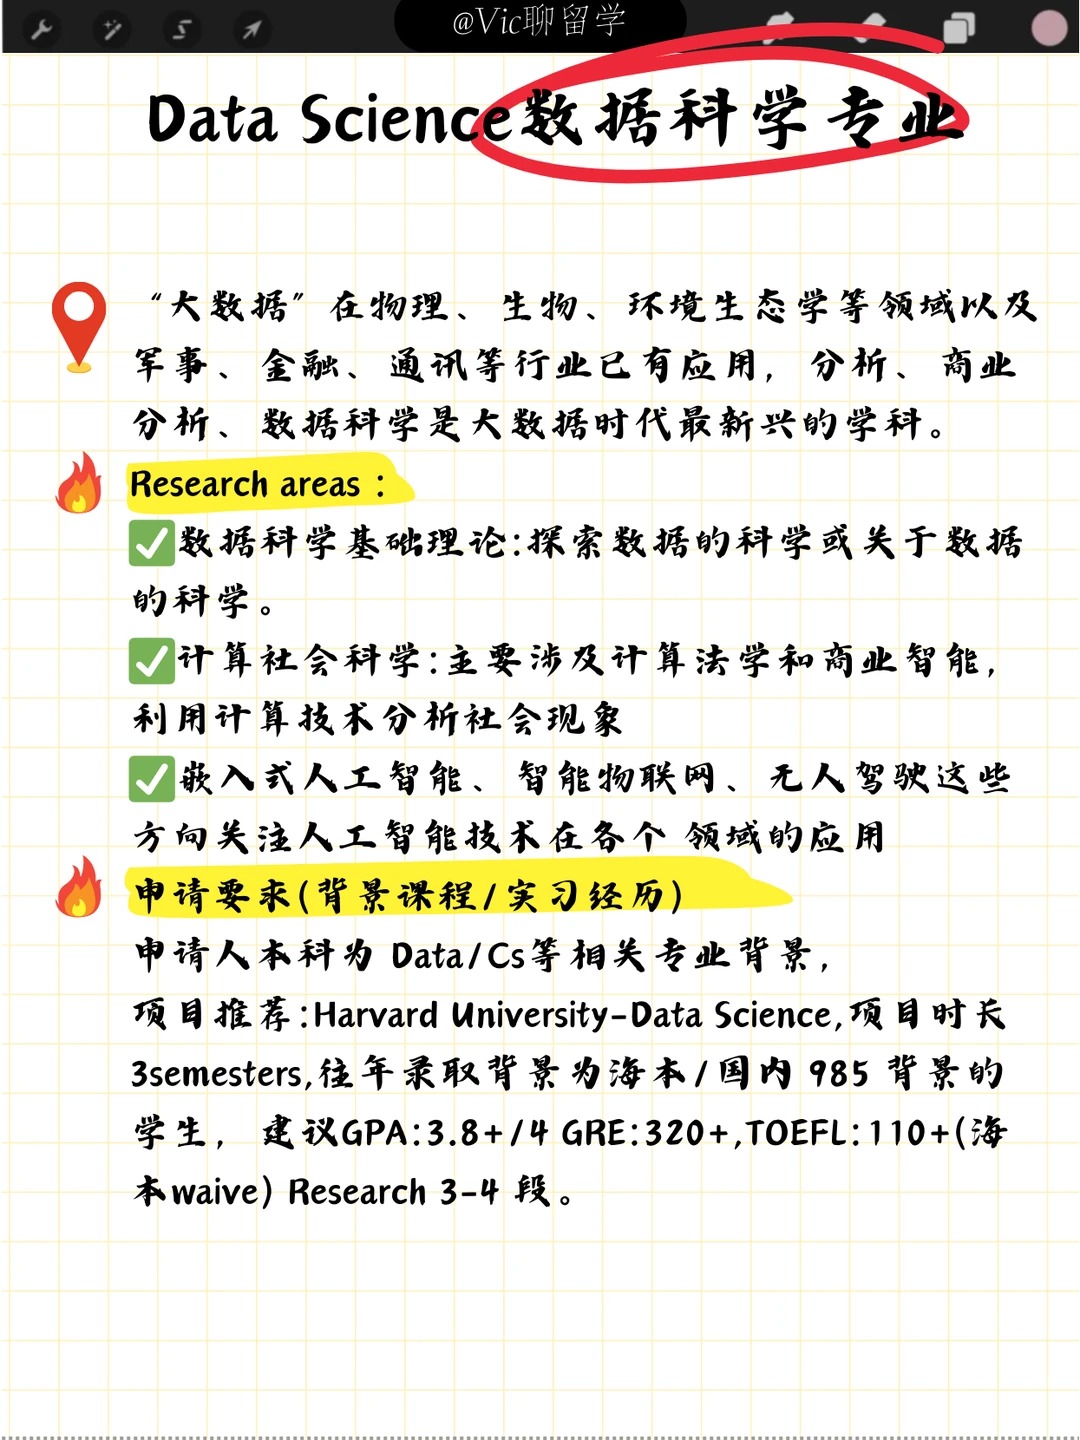 @Vic聊留学
Data Science数据科学专业
“大数据”在物理、生物、环境生态学等领域以及
军事、金融、通讯等行业已有应用，分析、商业
分析、数据科学是大数据时代最新兴的学科。
Research areas：
✅数据科学基础理论:探索数据的科学或关于数据
的科学。
✅计算社会科学:主要涉及计算法学和商业智能，
利用计算技术分析社会现象
✅嵌入式人工智能、智能物联网、无人驾驶这些
方向关注人工智能技术在各个 领域的应用
申请要求(背景课程/实习经历)
申请人本科为 Data/Cs等相关专业背景，
项目推荐:Harvard University-Data Science,项目时长
3semesters,往年录取背景为海本/国内 985 背景的
学生，建议GPA:3.8+/4 GRE:320+,TOEFL:110+(海
本waive) Research 3-4 段。